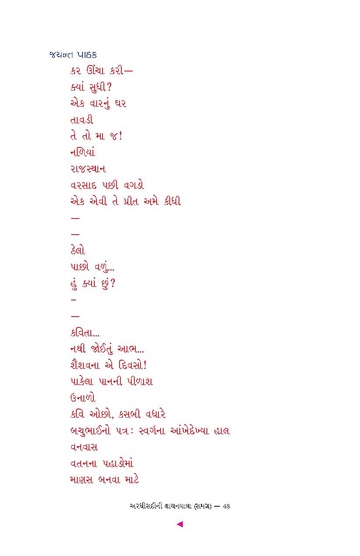 જયન્ત પાઠક
કર ઊંચા કરી—
ક્યાં સુધી?
એક વારનું ઘર
તાવડી
તે તો મા જ!
નળિયાં
રાજસ્થાન
વરસાદ પછી વગડો
એક એવી તે પ્રીત અમે કીધી
—
—
ડેલો
પાછો વળું...
હું ક્યાં છું?
–
—
કવિતા...
નથી જોઈતું આભ...
શૈશવના એ દિવસો!
પાકેલા પાનની પીળાશ
ઉનાળો
કવિ ઓછો, કસબી વધારે
બચુભાઈનો પત્ર : સ્વર્ગના આંખેદેખ્યા હાલ
વનવાસ
વતનના પહાડોમાં
માણસ બનવા માટે
અરધીસદીની વાચનયાત્રા (સમગ્ર) — 48
◄